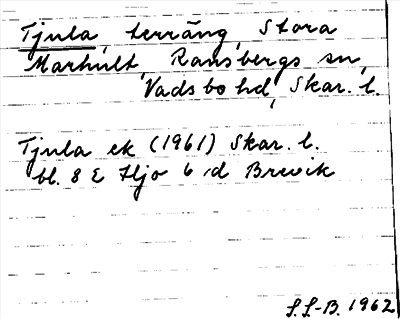 Tjula, terräng, Stora
Marhult, Ransbergs sn,
Vadsbo hd, Skar. l.
Tjula ek (1961) Skar. l.
bl. 8 E Hjo 6 d Brevik
S.S-B. 1962